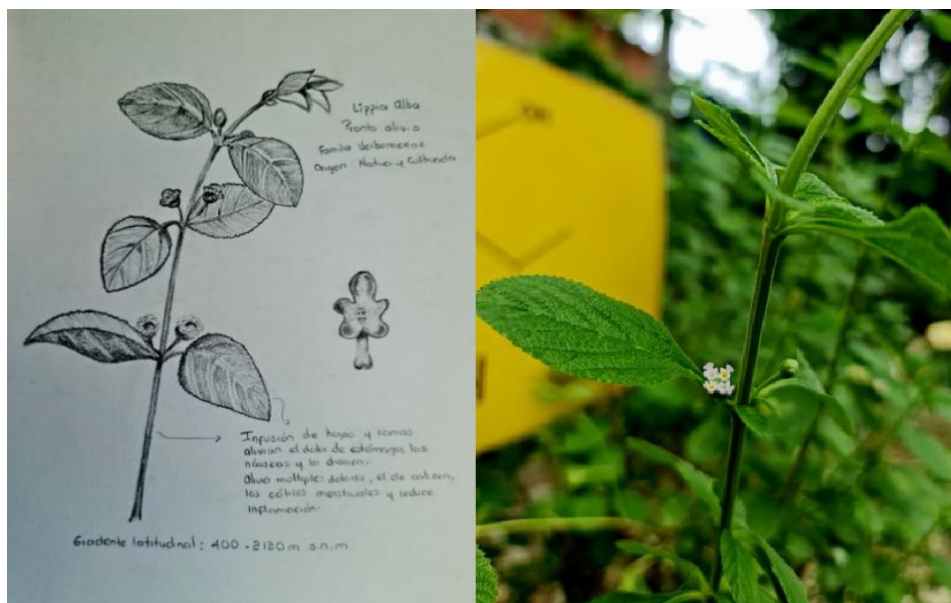 Lippia Alba
Pronto alivio
Familia Verbenaceas
Origen: Nativa y Cultivada
Infusión de hojas y ramas
alivian el dolor de estómago, las
náuseas y la diarrea.
Alivia múltiples dolores, el de cabeza,
los cólicos menstruales y reduce
inflamación.
Gradente latitudinal: 400 - 2120 m s.n.m
OH